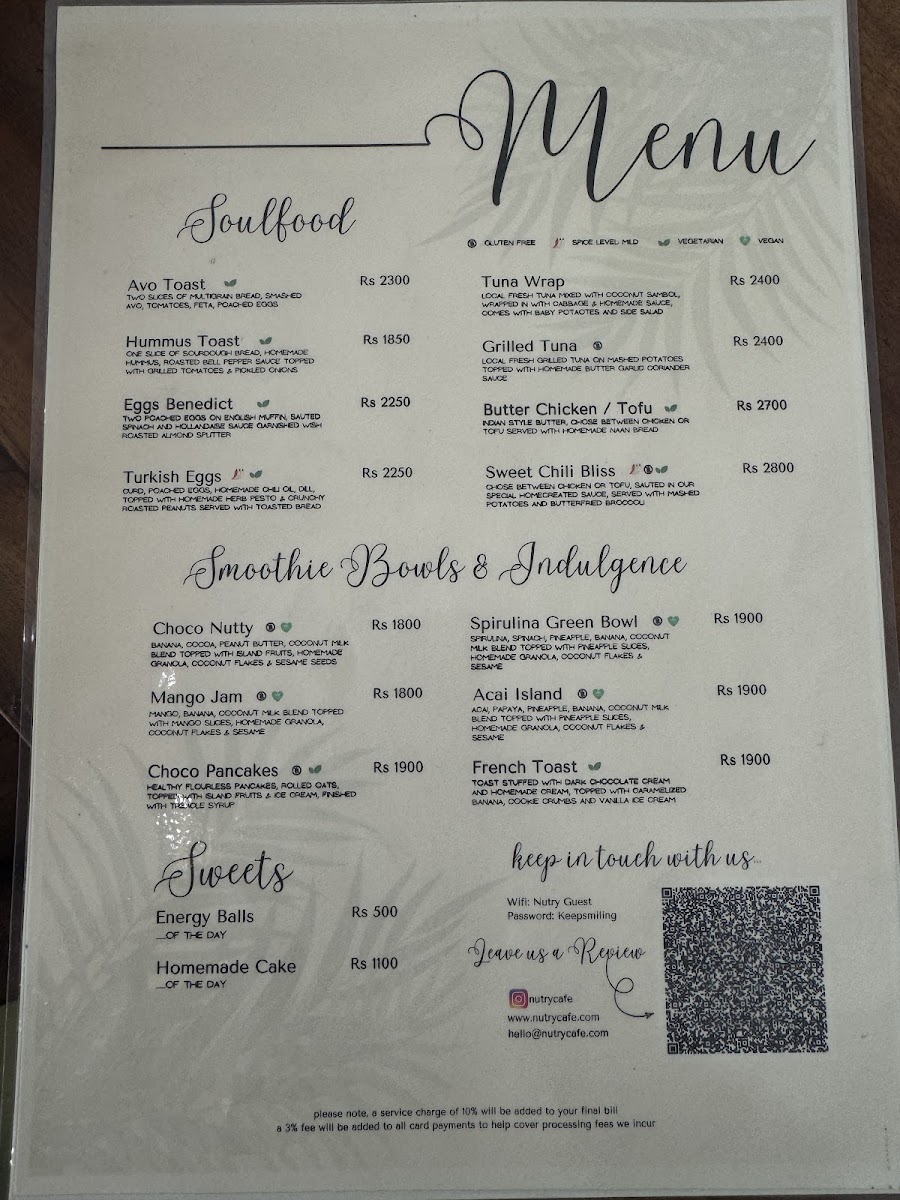 Menu
Soulfood
GLUTEN FREE SPICE LEVEL MILD VEGETARIAN VEGAN
Avo Toast Rs 2300
TWO SLICES OF MULTIGRAIN BREAD, SMASHED
AVO, TOMATOES, FETA, POACHED EGGS
Hummus Toast Rs 1850
ONE SLICE OF SOURDOUGH BREAD, HOMEMADE
HUMMUS, ROASTED BELL PEPPER SAUCE TOPPED
WITH GRILLED TOMATOES & PICKLED ONIONS
Eggs Benedict Rs 2250
TWO POACHED EGGS ON ENGLISH MUFFIN, SAUTED
SPINACH AND HOLLANDAISE SAUCE GARNISHED WISH
ROASTED ALMOND SPLITTER
Turkish Eggs Rs 2250
CURD, POACHED EGGS, HOMEMADE CHILI OIL, DILL,
TOPPED WITH HOMEMADE HERB PESTO & CRUNCHY
ROASTED PEANUTS SERVED WITH TOASTED BREAD
Tuna Wrap Rs 2400
LOCAL FRESH TUNA MIXED WITH COCONUT SAMBOL,
WRAPPED IN WITH CABBAGE & HOMEMADE SAUCE,
COMES WITH BABY POTAOTES AND SIDE SALAD
Grilled Tuna Rs 2400
LOCAL FRESH GRILLED TUNA ON MASHED POTATOES
TOPPED WITH HOMEMADE BUTTER GARLIC CORIANDER
SAUCE
Butter Chicken / Tofu Rs 2700
INDIAN STYLE BUTTER, CHOSE BETWEEN CHICKEN OR
TOFU SERVED WITH HOMEMADE NAAN BREAD
Sweet Chili Bliss Rs 2800
CHOSE BETWEEN CHICKEN OR TOFU, SAUTED IN OUR
SPECIAL HOMECREATED SAUCE, SERVED WITH MASHED
POTATOES AND BUTTERFRIED BROCCOLI
Smoothie Bowls & Indulgence
Choco Nutty Rs 1800
BANANA, COCOA, PEANUT BUTTER, COCONUT MILK
BLEND TOPPED WITH ISLAND FRUITS, HOMEMADE
GRANOLA, COCONUT FLAKES & SESAME SEEDS
Mango Jam Rs 1800
MANGO, BANANA, COCONUT MILK BLEND TOPPED
WITH MANGO SLICES, HOMEMADE GRANOLA,
COCONUT FLAKES & SESAME
Choco Pancakes Rs 1900
HEALTHY FLOURLESS PANCAKES, ROLLED OATS,
TOPPED WITH ISLAND FRUITS & ICE CREAM, FINISHED
WITH TREACLE SYRUP
Spirulina Green Bowl Rs 1900
SPIRULINA, SPINACH, PINEAPPLE, BANANA, COCONUT
MILK BLEND TOPPED WITH PINEAPPLE SLICES,
HOMEMADE GRANOLA, COCONUT FLAKES &
SESAME
Acai Island Rs 1900
ACAI, PAPAYA, PINEAPPLE, BANANA, COCONUT MILK
BLEND TOPPED WITH PINEAPPLE SLICES,
HOMEMADE GRANOLA, COCONUT FLAKES &
SESAME
French Toast Rs 1900
TOAST STUFFED WITH DARK CHOCOLATE CREAM
AND HOMEMADE CREAM, TOPPED WITH CARAMELIZED
BANANA, COOKIE CRUMBS AND VANILLA ICE CREAM
Sweets
Energy Balls Rs 500
...OF THE DAY
Homemade Cake Rs 1100
...OF THE DAY
keep in touch with us...
Wifi: Nutry Guest
Password: Keepsmiling
Leave us a Review
nutrycafe
www.nutrycafe.com
hello@nutrycafe.com
please note, a service charge of 10% will be added to your final bill
a 3% fee will be added to all card payments to help cover processing fees we incur